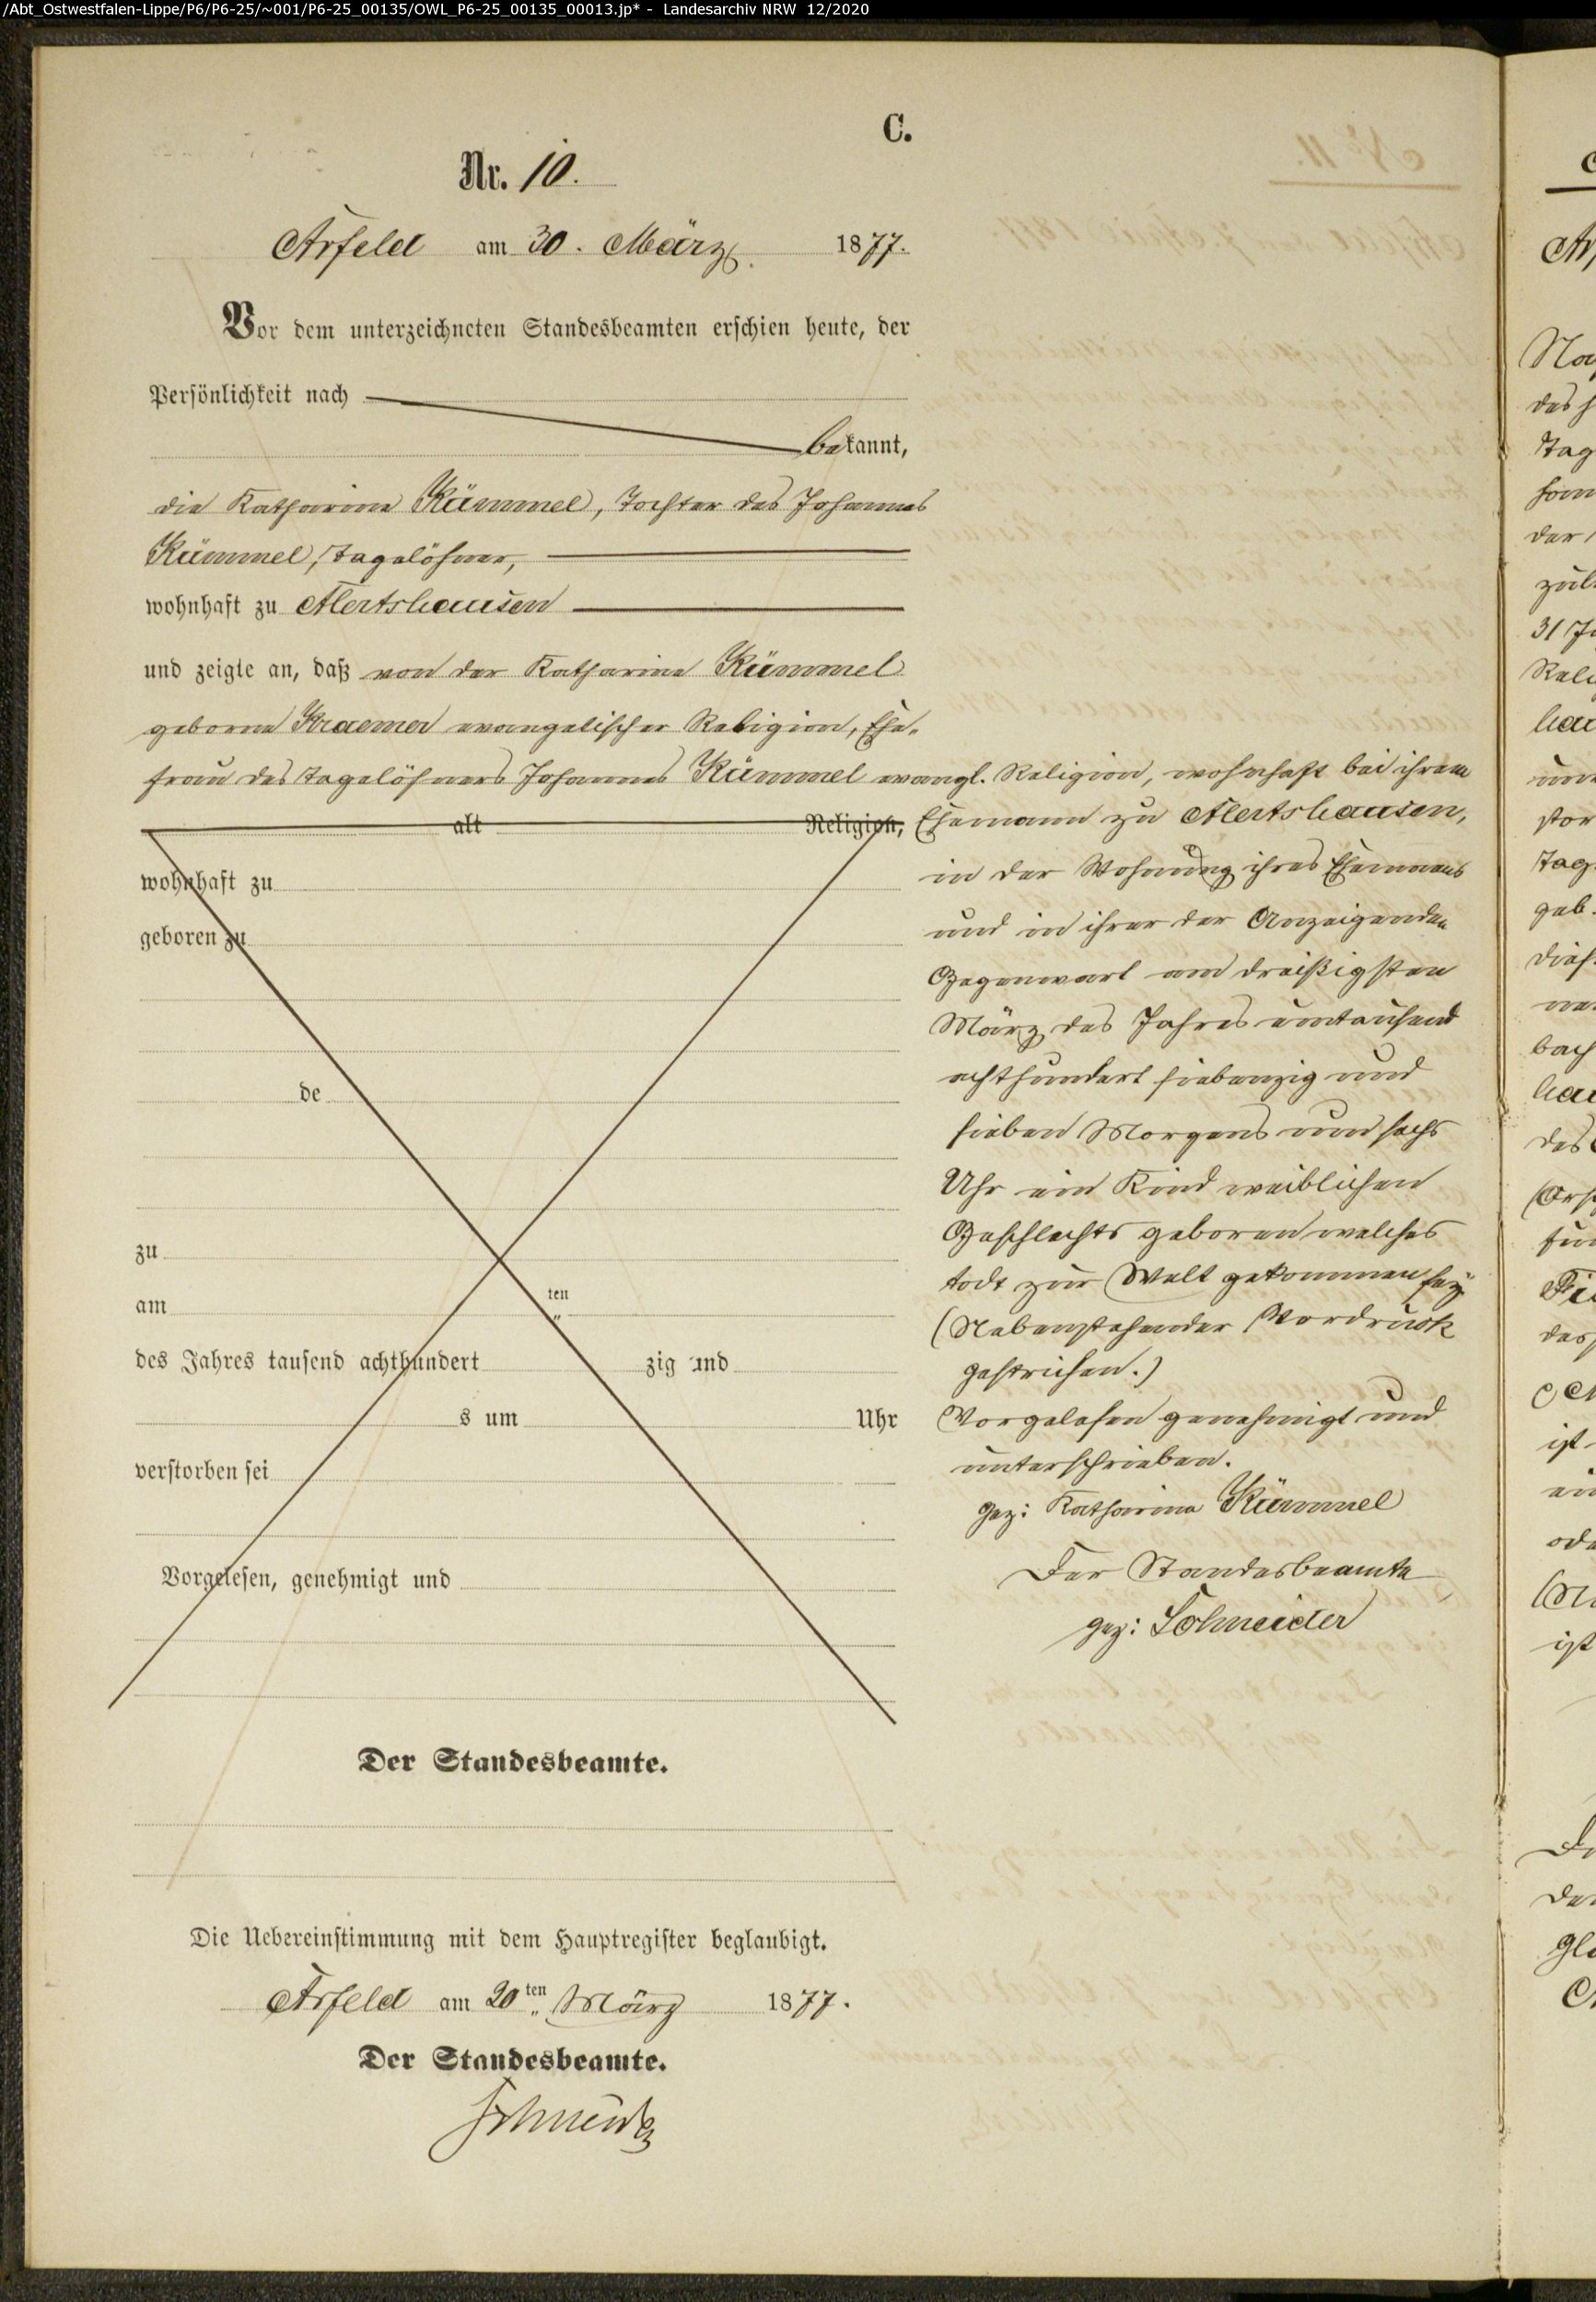 /Abt_Ostwestfalen-Lippe/P6/P6-25/~001/P6-25_00135/OWL_P6-25_00135_00013.jp* - Landesarchiv NRW 12/2020
C.
Nr. 10.
Arfeld am 30. März 1877.
Vor dem unterzeichneten Standesbeamten erschien heute, der
Persönlichkeit nach
bekannt,
die Katharina Kümmel, Tochter des Johannes
Kümmel, Tagelöhner,
wohnhaft zu Alertshausen
und zeigte an, daß von der Katharina Kümmel
geborne Kraemer evangelischer Religion, Ehe-
frau des Tagelöhners Johannes Kümmel evangl. Religion, wohnhaft bei ihrem
alt Religion,
wohnhaft zu
geboren zu
de
zu
am ten
des Jahres tausend achthundert zig und
s um Uhr
verstorben sei
Vorgelesen, genehmigt und
Ehemann zu Alertshausen,
in der Wohnung ihres Ehemanns
und in ihrer der Anzeigenden
Gegenwart am dreißigsten
März des Jahres eintausend
achthundert siebenzig und
sieben Morgens um sechs
Uhr ein Kind weiblichen
Geschlechts geboren welches
todt zur Welt gekommen sey.
(Nebenstehender Vordruck
gestrichen.)
Vorgelesen genehmigt und
unterschrieben.
gez: Katharina Kümmel
Der Standesbeamte
gez: Schneider
Der Standesbeamte.
Die Uebereinstimmung mit dem Hauptregister beglaubigt.
Arfeld am 20ten März 1877.
Der Standesbeamte.
Schneider